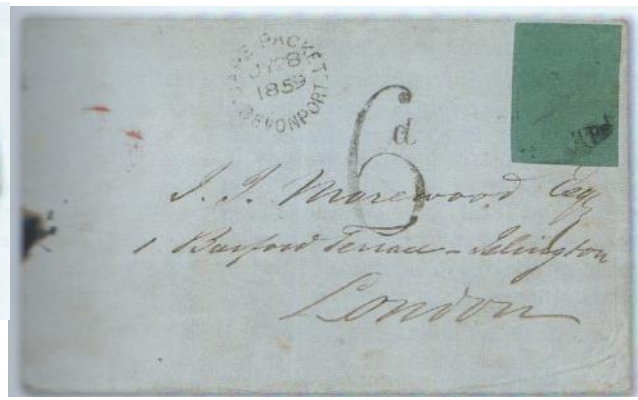 CAPE PACKET
JY 28
1859
DEVONPORT
6d
J. J. Morewood Esq
1 Barford Terrace - Islington
London